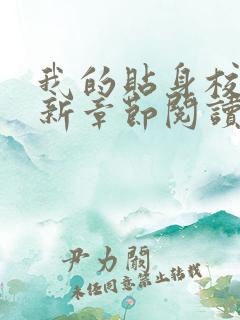 我的貼身校
新章節閱讀
尹力闕
未經同意禁止轉載